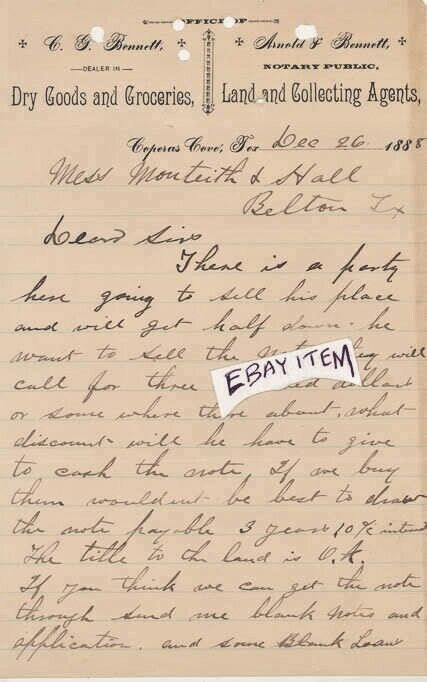 OFFICE OF
C. G. Bennett,
DEALER IN
Dry Goods and Groceries,
Arnold & Bennett,
NOTARY PUBLIC,
Land and Collecting Agents,
Coperas Cove, Tex Dec 26 1888
Mess Monteith & Hall
Belton Tx
Dear Sirs
There is a party
here going to sell his place
and will get half down. he
want to sell the will
call for three dollars
or some where there about, what
discount will he have to give
to cash the note If we buy
them wouldent be best to draw
the note payable 3 years 10%
The title to the land is O.K.
If you think we can get the note
through send me blank notes and
application. and some Blank Loan
EBAY ITEM